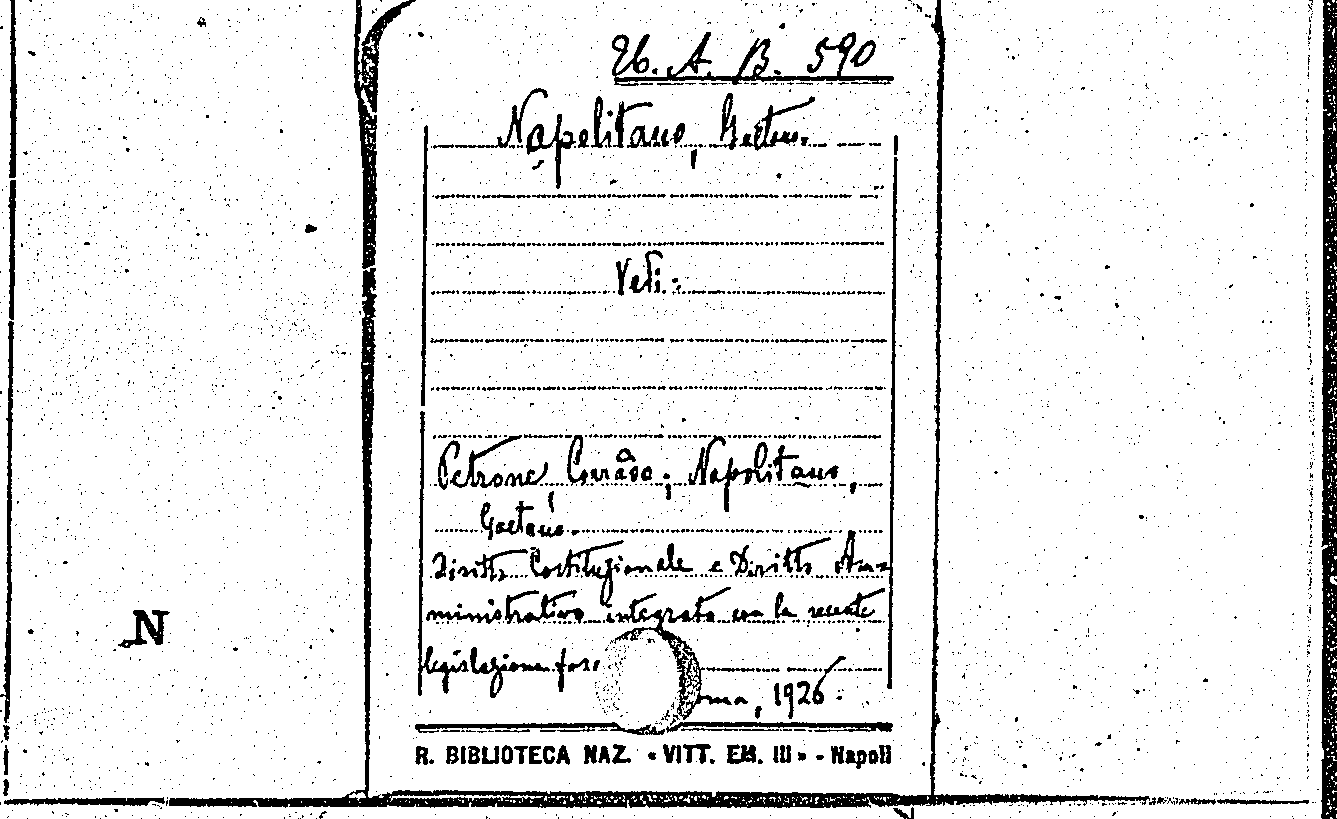 A. B. 590
Napolitano, Gaetano.
Vedi:
Petrone, Corrado; Napolitano,
Gaetano.
Diritto Costituzionale e Diritto Am=
ministrativo integrato con la recente
legislazione fas
oma, 1926.
N
R. BIBLIOTECA NAZ. «VITT. EM. III» - Napoli